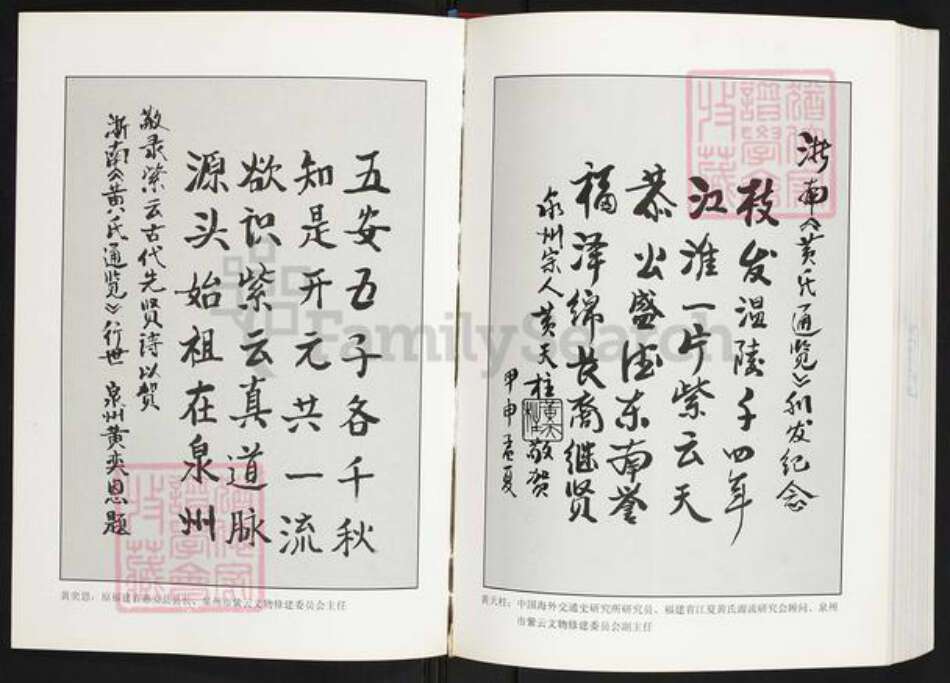 五安五子各千秋
知是开元共一流
欲识紫云真道脉
源头始祖在泉州
敬录紫云古代先贤诗以贺
浙南《黄氏通览》行世 泉州黄奕恩题
黄奕恩:原福建省
泉州市紫云文物修建委员会主任
浙南《黄氏通览》刊发纪念
枝发温陵千四年
江淮一片紫云天
恭公盛德东南誉
福泽绵长裔继贤
泉州宗人黄天柱敬贺
甲申孟夏
黄天柱:中国海外交通史研究所研究员、福建省江夏黄氏源流研究会顾问、泉州
市紫云文物修建委员会副主任
FamilySearch